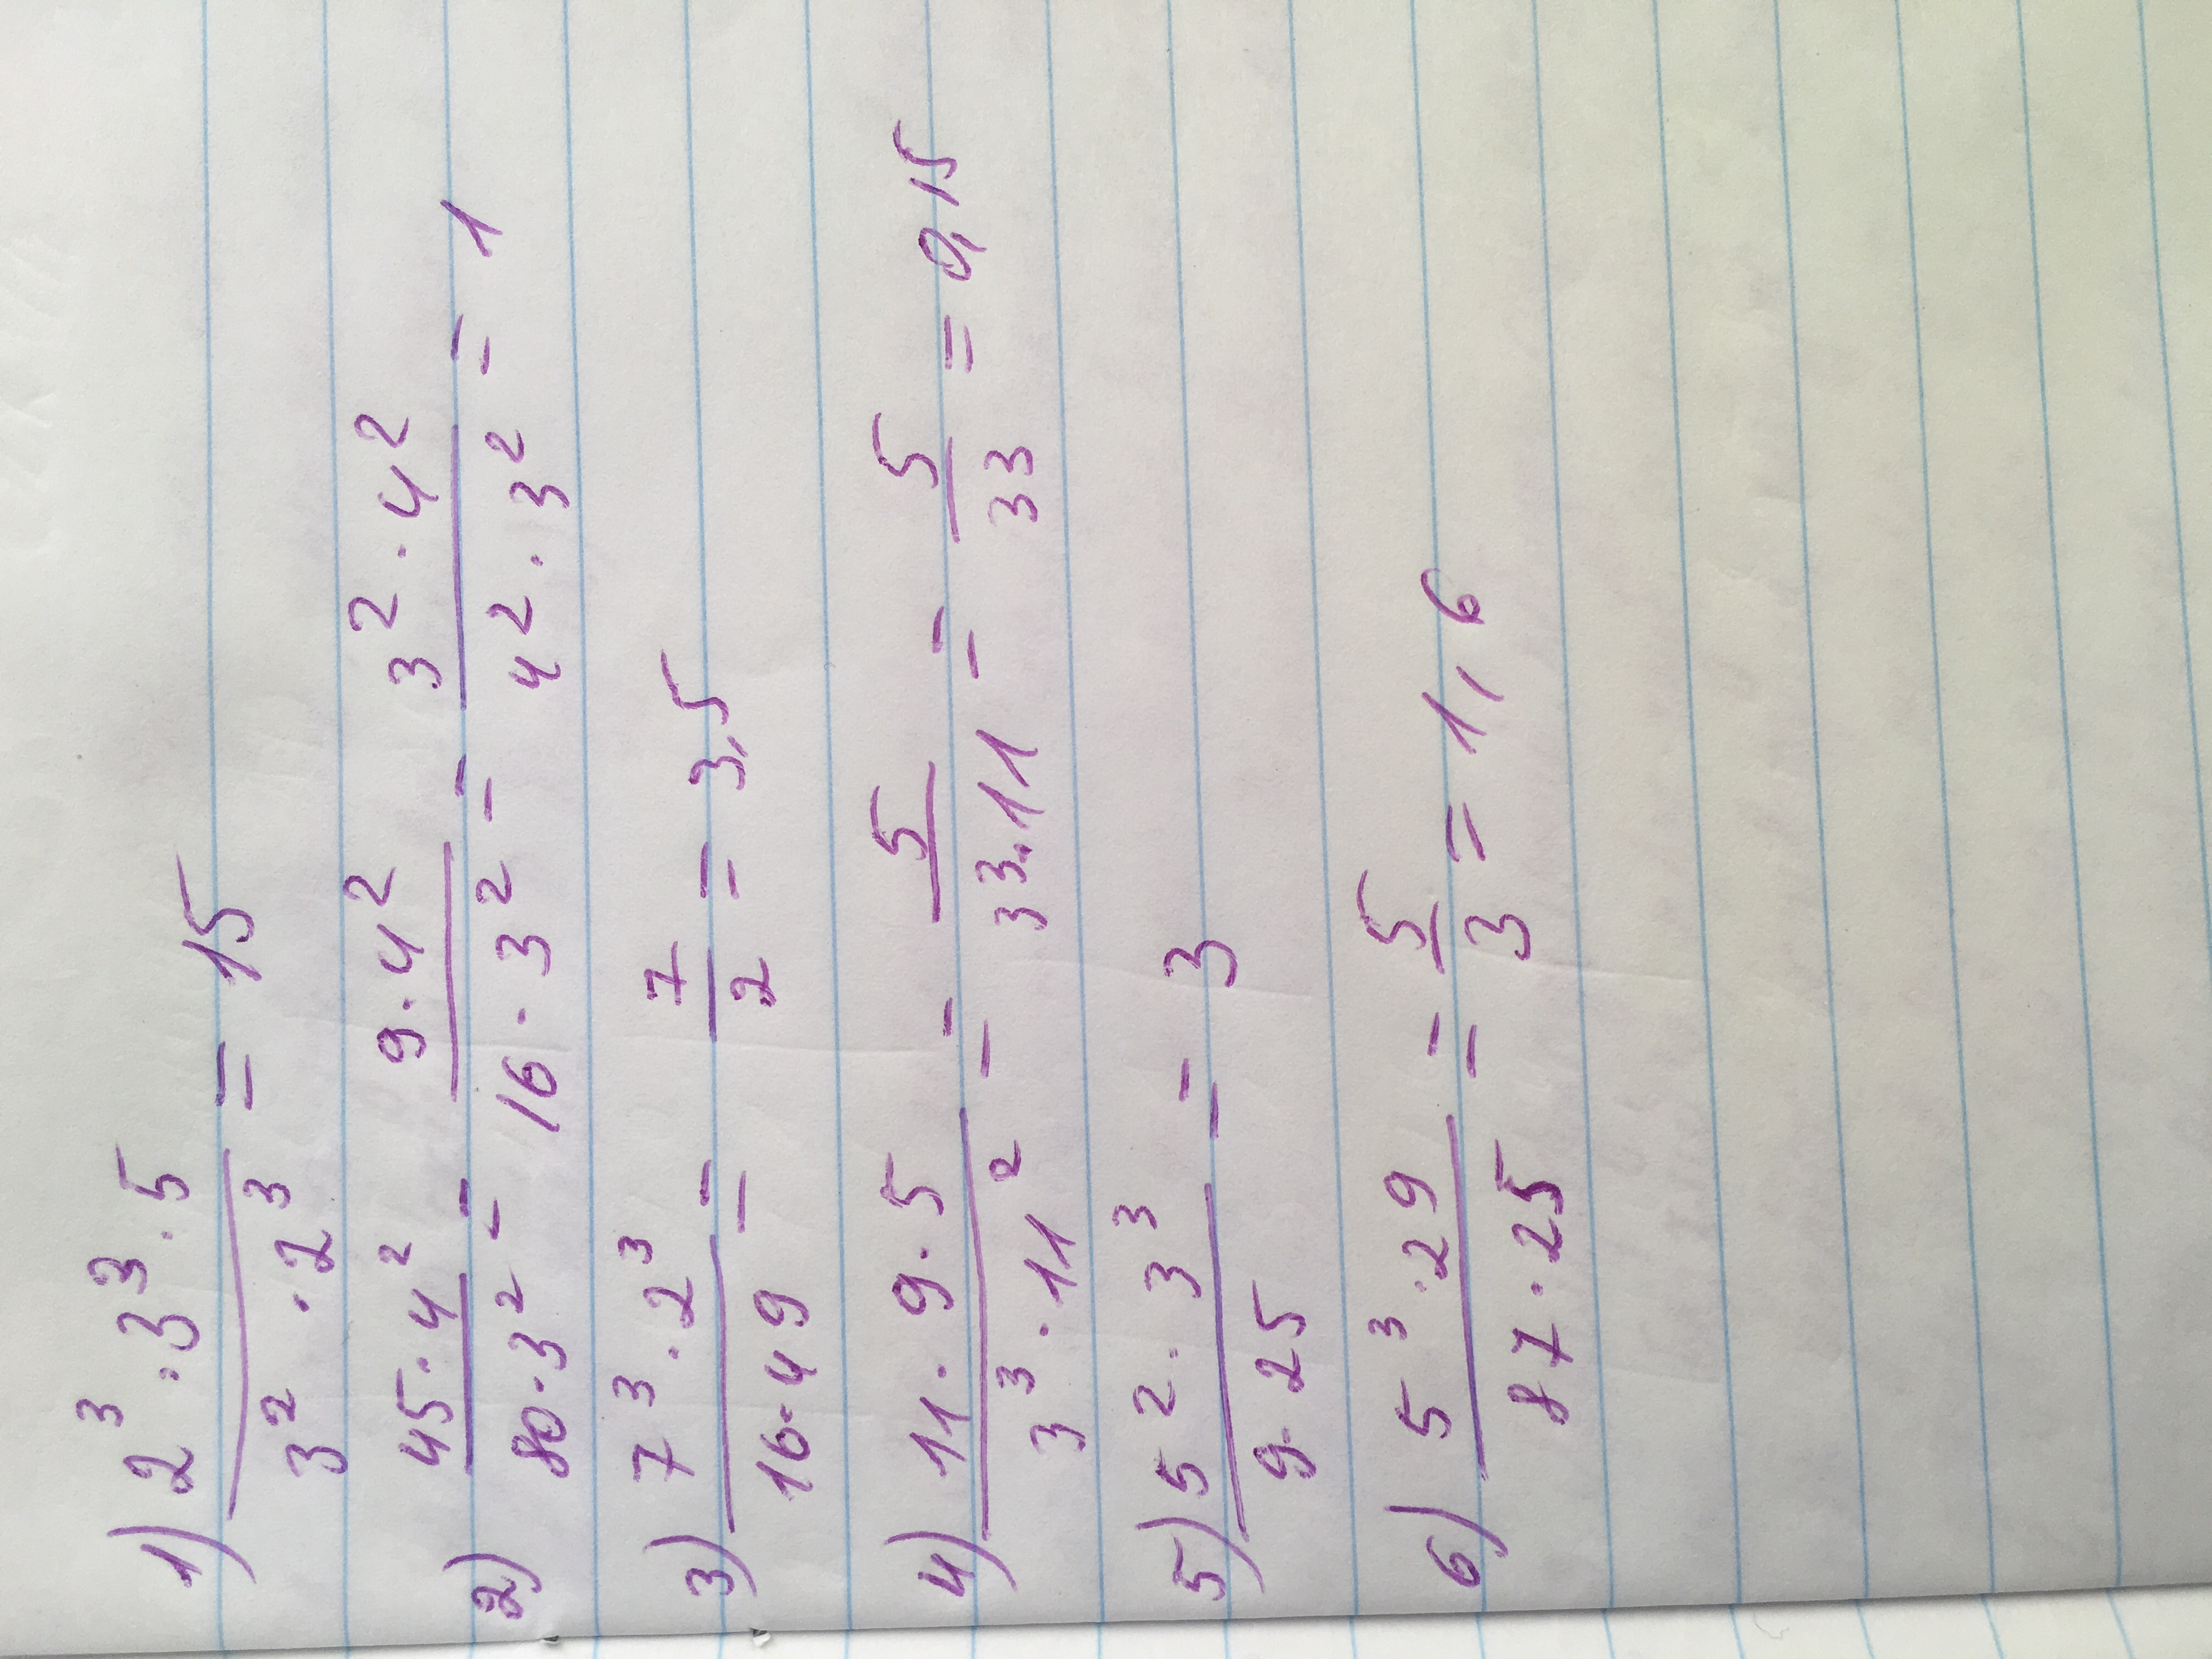 1) 2³·3³·5 / 3²·2³ = 15
2) 45·4² / 80·3² = 9·4² / 16·3² = 3²·4² / 4²·3² = 1
3) 7³·2³ / 16·49 = 7/2 = 3,5
4) 11·9·5 / 3³·11² = 5 / 33·11 = 5/33 = 0,15
5) 5²·3³ / 9·25 = 3
6) 5³·29 / 87·25 = 5/3 = 1,6